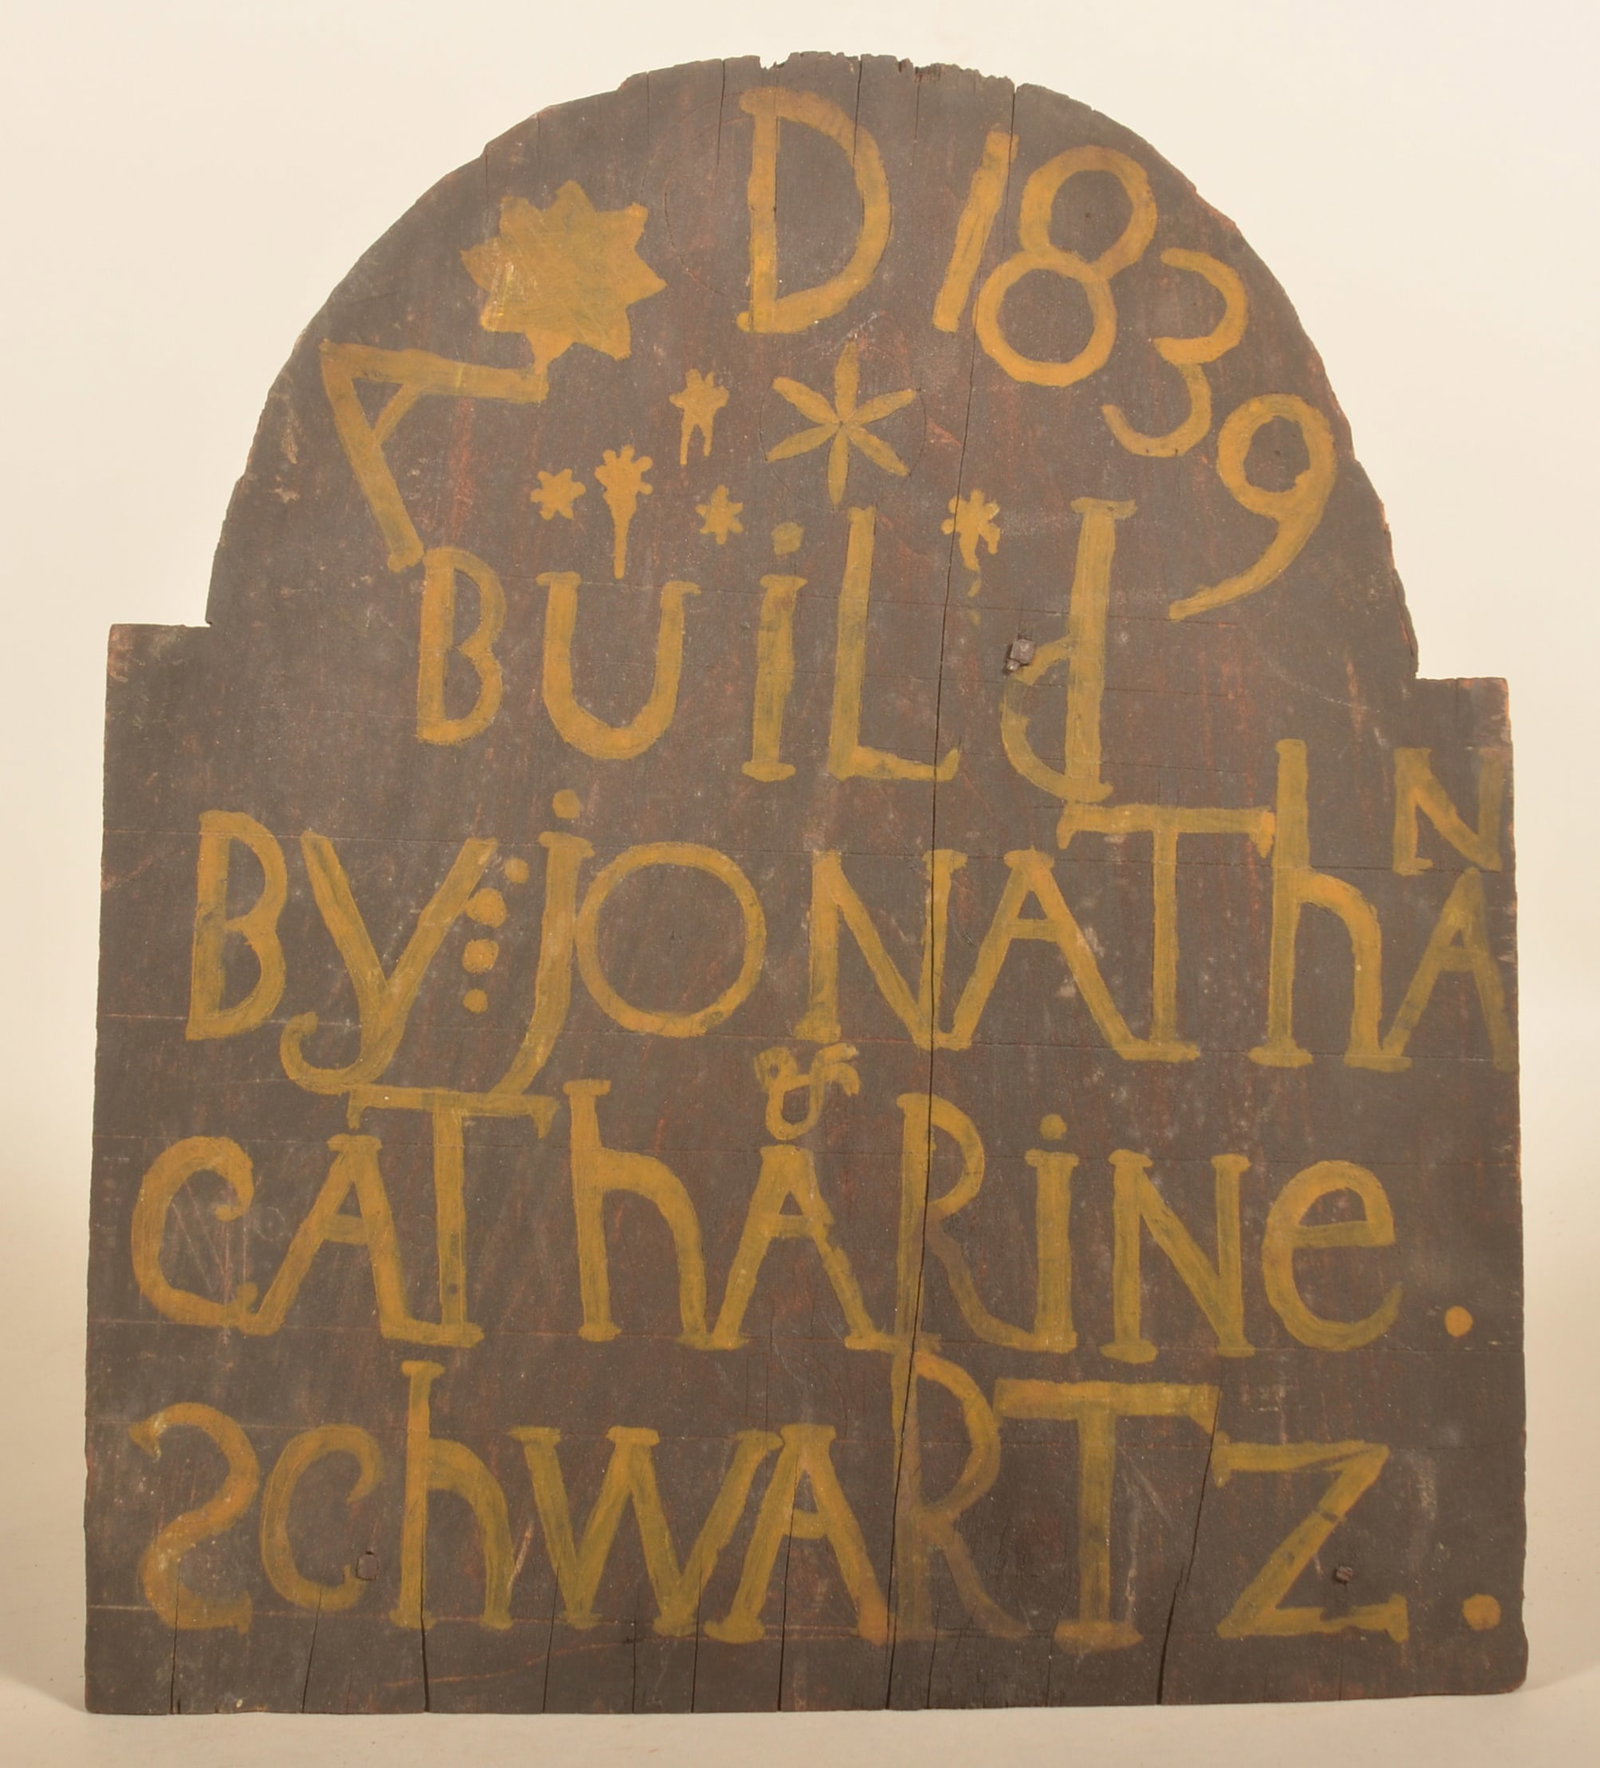 A D 1839
BUiLd
BY jONAThAN
&
CAThARiNe.
SchWARTZ.